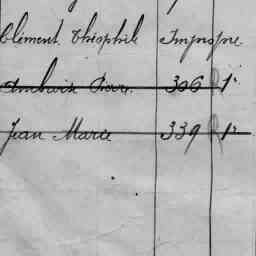 Clément Théophile Impropre
Ambroise Pierre. 306 1°
Jean Marie 339 1°